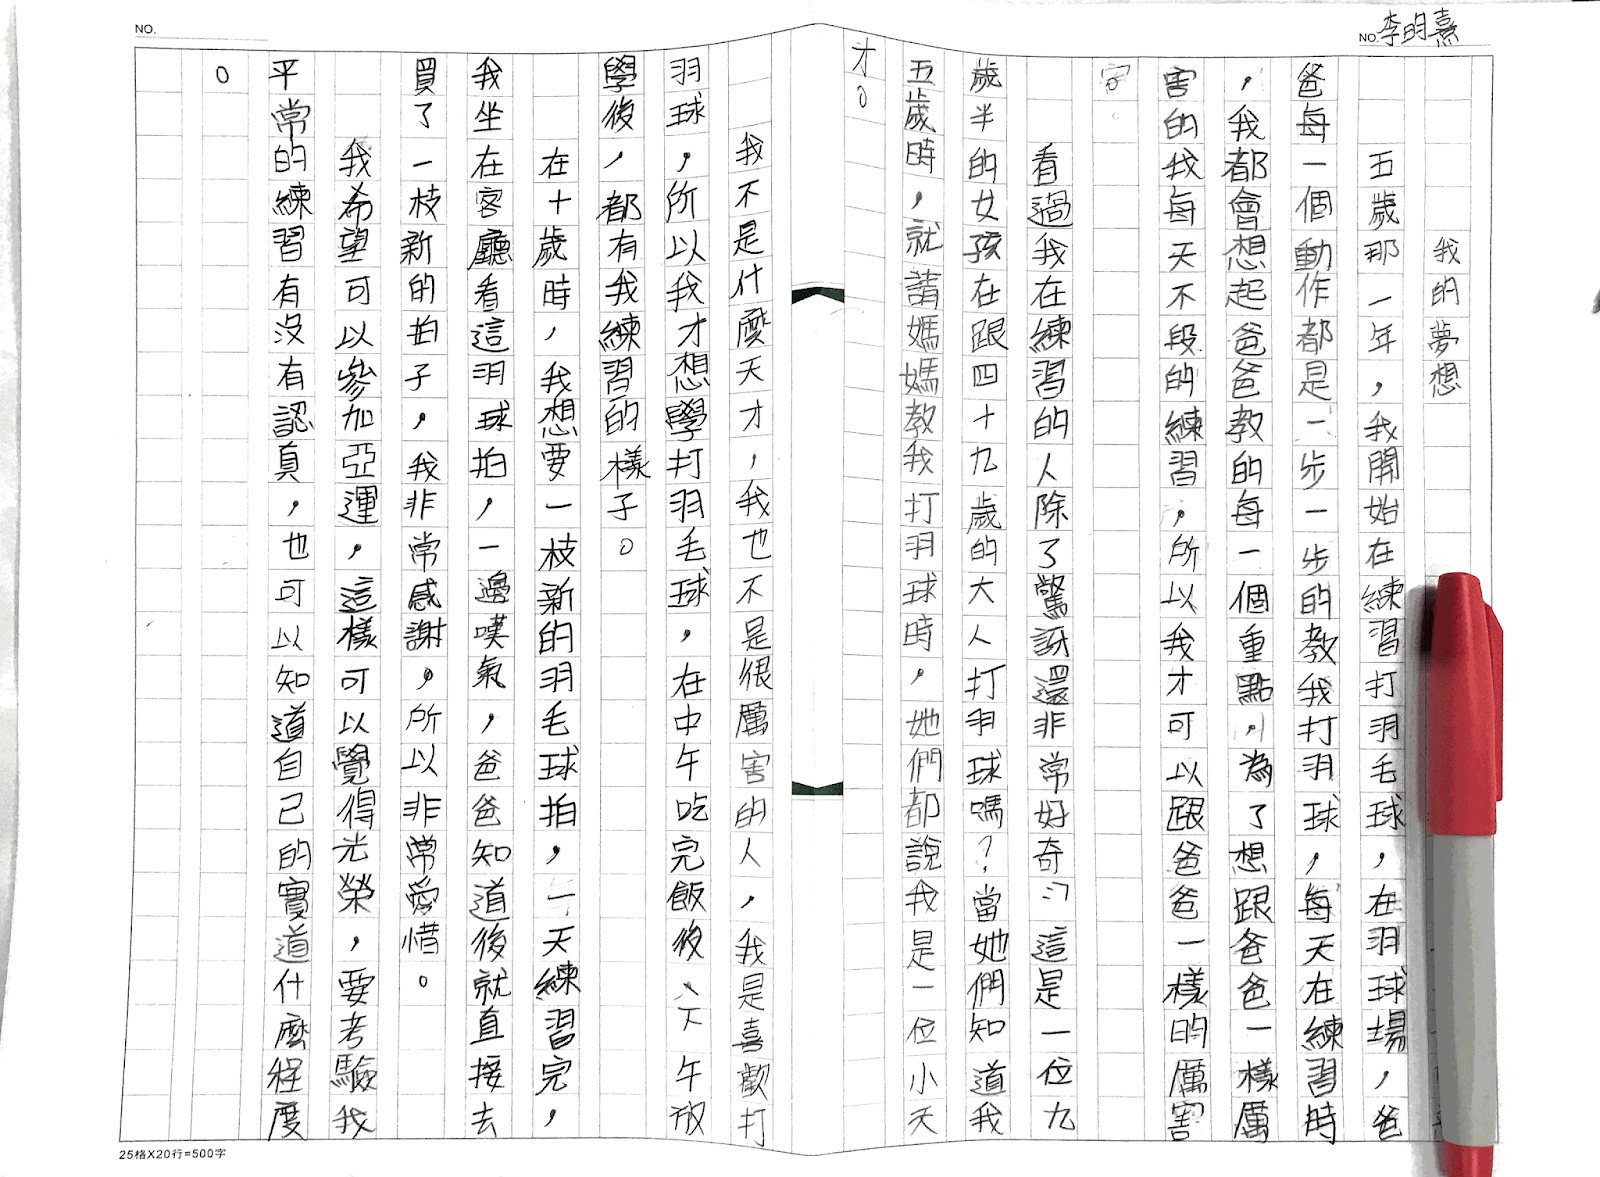 NO.
NO. 李明熹
我的夢想
五歲那一年，我開始在練習打羽毛球，在羽球場，爸
爸每一個動作都是一步一步的教我打羽球，每天在練習時
，我都會想起爸爸教的每一個重點，為了想跟爸爸一樣厲
害的我每天不段的練習，所以我才可以跟爸爸一樣的厲害
看過我在練習的人除了驚訝還非常好奇：這是一位九
歲半的女孩在跟四十九歲的大人打羽球嗎？當她們知道我
五歲時，就請媽媽教我打羽球時，她們都說我是一位小天
才。
我不是什麼天才，我也不是很厲害的人，我是喜歡打
羽球，所以我才想學打羽毛球，在中午吃完飯後、下午放
學後，都有我練習的樣子。
在十歲時，我想要一枝新的羽毛球拍，一天練習完，
我坐在客廳看這羽球拍，一邊嘆氣，爸爸知道後就直接去
買了一枝新的拍子，我非常感謝，所以非常愛惜。
我希望可以參加亞運，這樣可以覺得光榮，要考驗我
平常的練習有沒有認真，也可以知道自己的實道什麼程度
。
25格X20行=500字